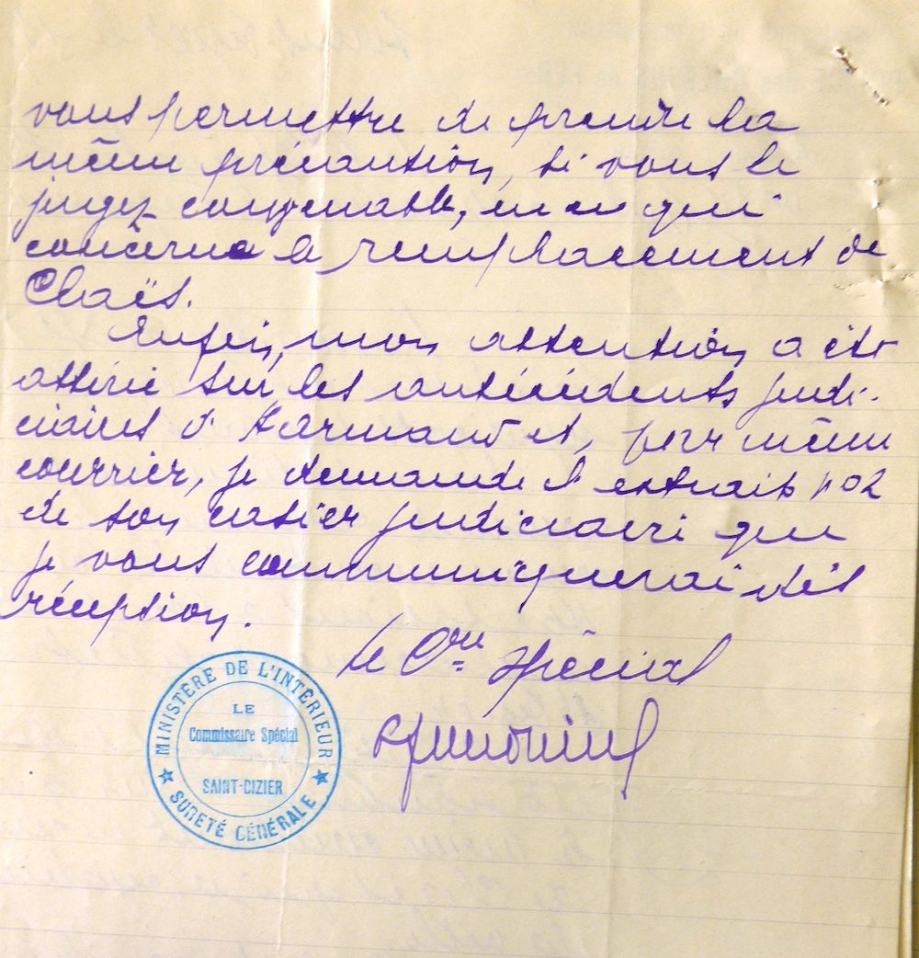 vous permettre de prendre la
même précaution, si vous le
jugez convenable, en ce qui
concerne le remplacement de
Claës.
Enfin, mon attention a été
attirée sur les antécédents judi-
ciaires d'Harmand et, par même
courrier, je demande l'extrait n°2
de son casier judiciaire que
je vous communiquerai dès
réception.
Le Cre Spécial
MINISTÈRE DE L'INTÉRIEUR
LE
Commissaire Spécial
SAINT-CIZIER
SURETÉ GÉNÉRALE